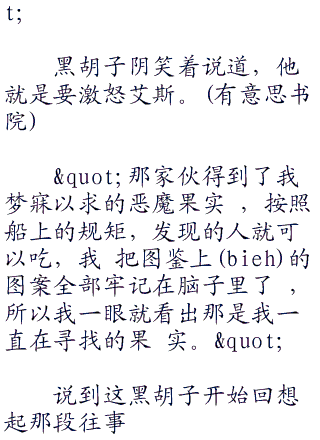 t;
黑胡子阴笑着说道，他
就是要激怒艾斯。(有意思书
院)
&quot;那家伙得到了我
梦寐以求的恶魔果实 ，按照
船上的规矩，发现的人就可
以吃，我 把图鉴上(bieh)的
图案全部牢记在脑子里了 ，
所以我一眼就看出那是我一
直在寻找的果 实。&quot;
说到这黑胡子开始回想
起那段往事